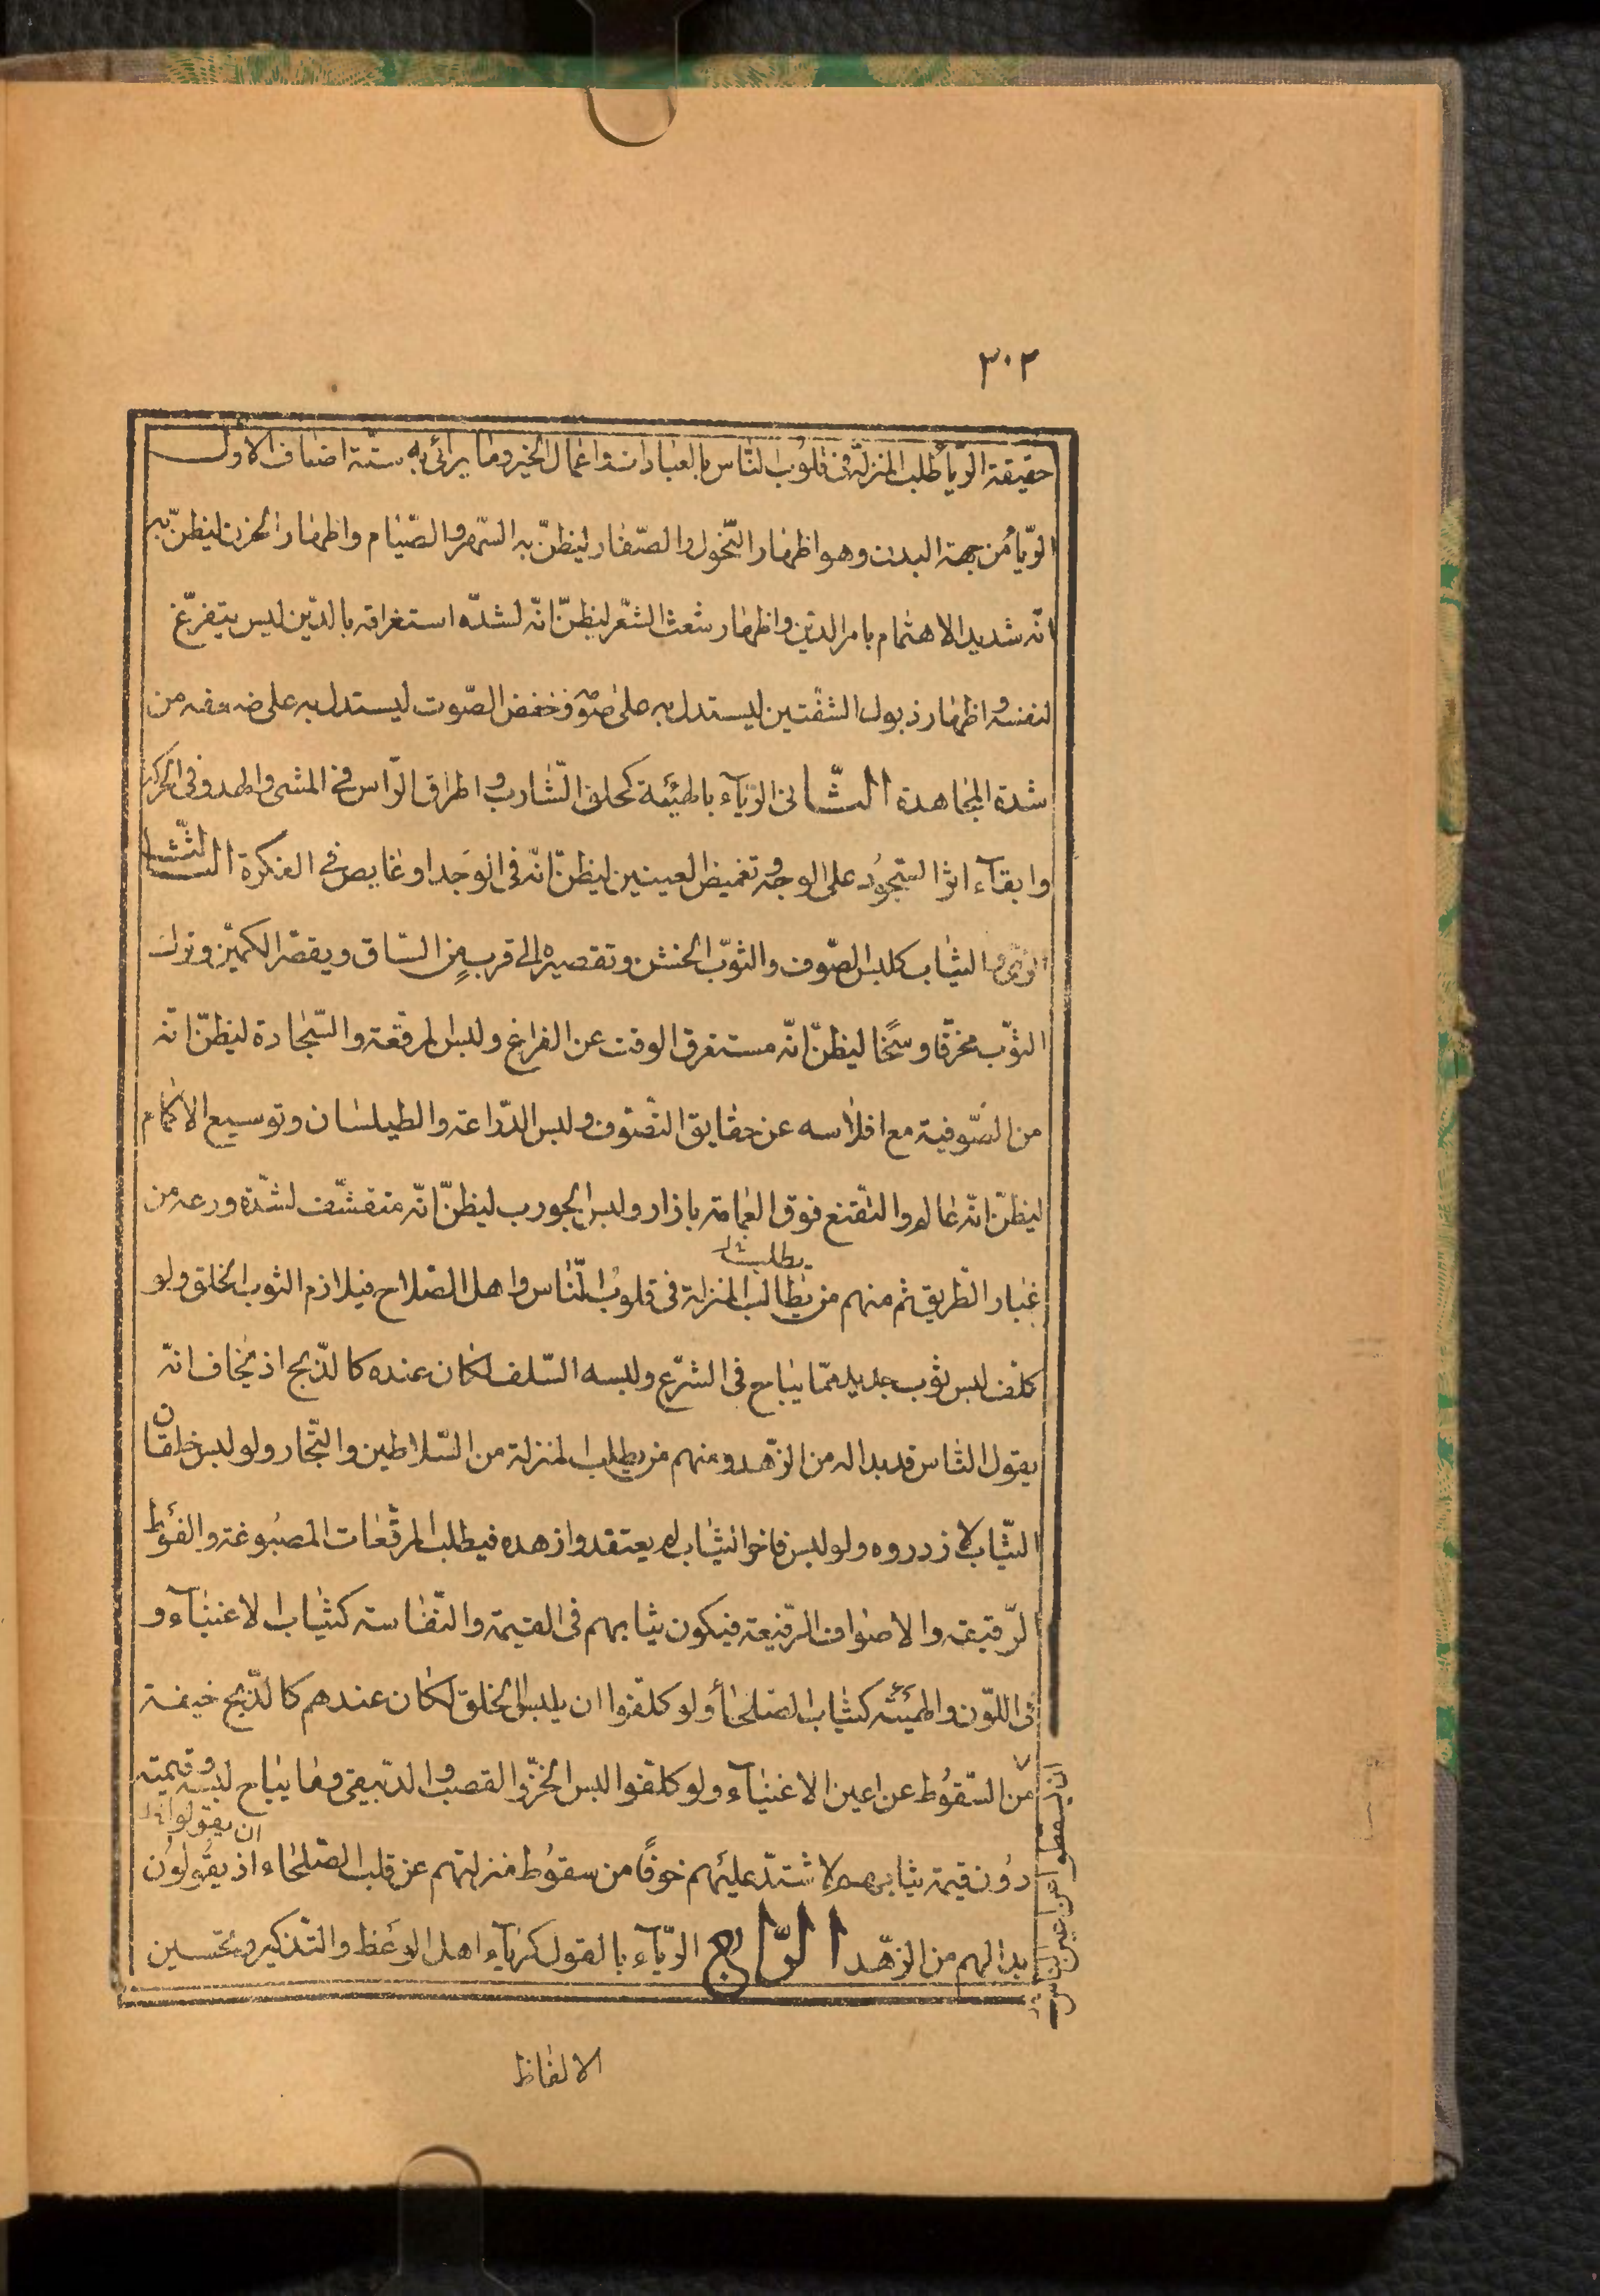 ٣٠٢
حقيقة الرّيآ طلب المنزلة فى قلوب النّاس بالعبادات واعمال الخير وما يرائى به ستّة اصناف الاوّل
الرّيآ من جهة البدن وهو اظهار النّحول والصّفار ليظنّ به السّهر والصّيام واظهار الحزن ليظنّ به
انّه شديد الاهتمام بامر الدّين واظهار شعث الشّعر ليظنّ انّه لشدّه استغراقه بالدّين ليس يتفرّغ
لنفسه واظهار ذبول الشفتين ليستدل به على صومه وخفض الصّوت ليستدل به على ضعفه من
شدة المجاهدة الثّانى الرّيآء بالهيئة كحلق الشّارب واطراق الرّاس فى المشى والهدو فى الحركة
وابقآء اثر السّجود على الوجه وتغميض العينين ليظنّ انّه فى الوجد او غايص فى الفكرة الثّالث
الثياب كلبس الصّوف والثوب الخشن وتقصيره الى قرب من السّاق ويقصّر الكمّين وترك
الثوب مخرّقا وسخًا ليظنّ انّه مستغرق الوقت عن الفراغ ولبس المرقّعة والسّجّادة ليظنّ انّه
من الصّوفية مع افلاسه عن حقايق التصّوف ولبس الدّراعة والطيلسان وتوسيع الاكمام
ليظنّ انّه عالم والتقنع فوق العمامة بازار ولبس الجورب ليظنّ انّه متقشّف لشدّة ورعه من
يطلب
غبار الطّريق ثم منهم من يطالب المنزلة فى قلوب النّاس واهل الصّلاح فيلازم الثوب الخلق ولو
كلّف لبس ثوب جديد ممّا يباح فى الشّرع ولبسه السّلف لكان عنده كالذّبح اذ يخاف انّه
يقول النّاس قد بدا له من الزّهد ومنهم من يطلب المنزلة من السّلاطين والتّجار ولو لبس خلقان
الثّياب لازدروه ولو لبس فاخر الثياب لم يعتقدوا زهده فيطلب المرقّعات المصبوغة والفوط
الرّقيقة والاصواف الرّفيعة فيكون ثيابهم فى القيمة والنّفاسة كثياب الاغنيآء و
فى اللّون والهيئة كثياب الصّلحآ ولو كلّفوا ان يلبس الخلق لكان عندهم كالذّبح خيفة
من السّقوط عن اعين الاغنيآء ولو كلّفوا لبس الخزّ والقصب والدّبيقى وما يباح لبسه وقيمته
ان يقولوا
دون قيمة ثيابهم لاشتدّ عليهم خوفًا من سقوط منزلتهم عن قلب الصّلحاء اذ يقولون
بدا لهم من الزّهد الرّابع الرّيآء بالقول كريآء اهل الوعظ والتّذكير وتحسين
من اعين الناس
الالفاظ